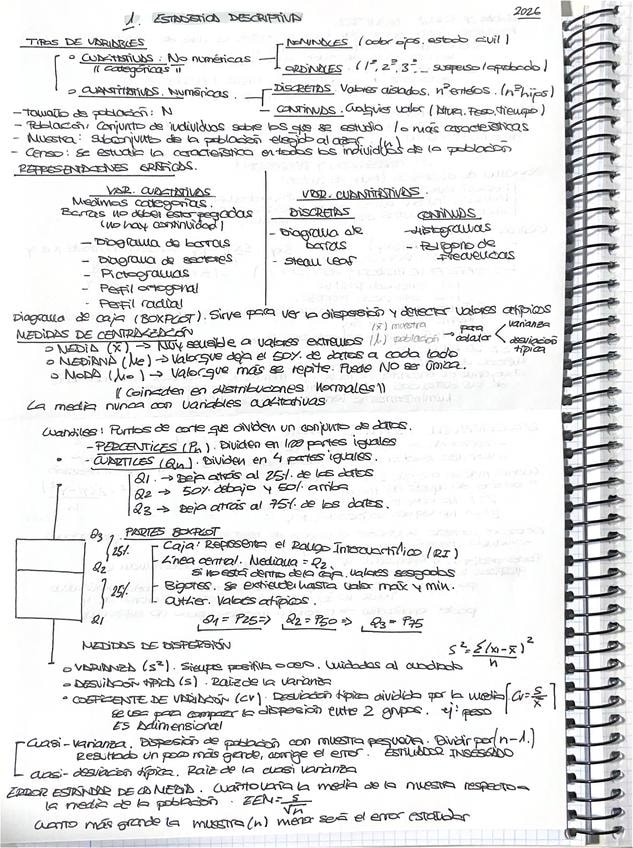 1. ESTADÍSTICA DESCRIPTIVA
2026
TIPOS DE VARIABLES
o CUALITATIVAS: No numéricas
"categóricas"
NOMINALES (color ojos, estado civil)
ORDINALES (1º, 2º, 3º... suspenso/aprobado)
o CUANTITATIVAS. Numéricas.
DISCRETAS. Valores aislados. nº enteros. (nº hijos)
CONTINUAS. Cualquier valor (Altura. Peso, tiempo)
- Tamaño de población: N
- Población: Conjunto de individuos sobre los que se estudia 1 o más características
- Muestra: subconjunto de la población elegido al azar (n)
- Censo: se estudia la característica en todos los individuos de la población
REPRESENTACIONES GRÁFICAS.
VAR. CUALITATIVAS
Medimos categorías.
Barras no deben estar pegadas
(no hay continuidad)
- Diagrama de barras
- Diagrama de sectores
- Pictogramas
- Perfil ortogonal
- Perfil radial
VAR. CUANTITATIVAS.
DISCRETAS
- Diagrama de
barras
- Steam Leaf
CONTINUAS
- Histogramas
- Polígono de
frecuencias
Diagrama de caja (BOXPLOT). Sirve para ver la dispersión y detectar valores atípicos
MEDIDAS DE CENTRALIZACIÓN
o MEDIA (x̄) → Muy sensible a valores extremos
(x̄) muestra
(μ) población → para calcular < varianza
desviación típica
o MEDIANA (Me) → Valor que deja el 50% de datos a cada lado
o MODA (Mo) → Valor que más se repite. Puede NO ser única.
"Coinciden en distribuciones normales"
La media nunca con variables cualitativas
Cuantiles: Puntos de corte que dividen un conjunto de datos.
- PERCENTILES (Pn). Dividen en 100 partes iguales
- CUARTILES (Qn). Dividen en 4 partes iguales.
Q1. → Deja atrás al 25% de los datos
Q2 → 50% debajo y 50% arriba
Q3 → Deja atrás al 75% de los datos.
Q3
25%
Q2
25%
Q1
PARTES BOXPLOT
Caja: Representa el Rango Intercuartílico (RI)
Línea central. Mediana = Q2.
si no está dentro de la caja, valores sesgados
Bigotes. Se extiende hasta valor max y min.
Outlier. Valores atípicos.
Q1 = P25 => Q2 = P50 => Q3 = P75
MEDIDAS DE DISPERSIÓN
S² = Σ(xi-x̄)²/n
o VARIANZA (S²). Siempre positiva o cero. Unidades al cuadrado
o DESVIACIÓN TÍPICA (S). Raíz de la varianza
o COEFICIENTE DE VARIACIÓN (CV). Desviación típica dividido por la media [CV = S/x̄
se usa para comparar la dispersión entre 2 grupos. ej: peso
ES Adimensional
Cuasi-varianza. Dispersión de población con muestra pequeña. Dividir por (n-1.)
Resultado un poco más grande, corrige el error. ESTIMADOR INSESGADO
cuasi-desviación típica. Raíz de la cuasi varianza
ERROR ESTÁNDAR DE LA MEDIA. Cuánto varía la media de la muestra respecto a
la media de la población. EEM = S/√n
Cuanto más grande la muestra (n) menor será el error estándar